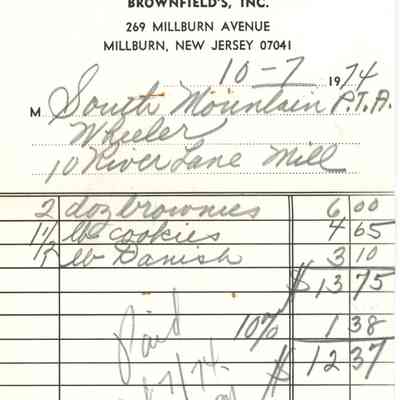 BROWNFIELD'S, INC.
269 MILLBURN AVENUE
MILLBURN, NEW JERSEY 07041
10-7 1974
M South Mountain P.T.A.
Wheeler
10 River Lane Mill
2 doz brownies 6 00
1 1/2 lb cookies 4 65
1 lb Danish 3 10
$ 13 75
10% 1 38
$ 12 37
Paid